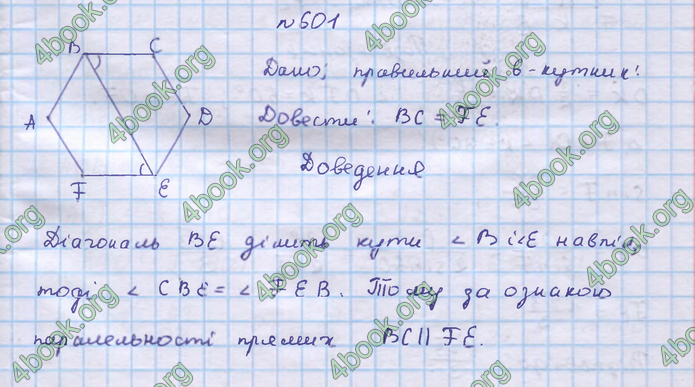 №601
B C
Дано: правильний 6-кутник.
A D
Довести: BC = FE.
F E
Доведення
Діагональ BE ділить кути < B і <E навпіл
тоді < CBE = < FEB. Тому за ознакою
паралельності прямих BC || FE.
4book.org
4book.org
4book.org
4book.org
4book.org
4book.org
4book.org
4book.org
4book.org
4book.org
4book.org
4book.org